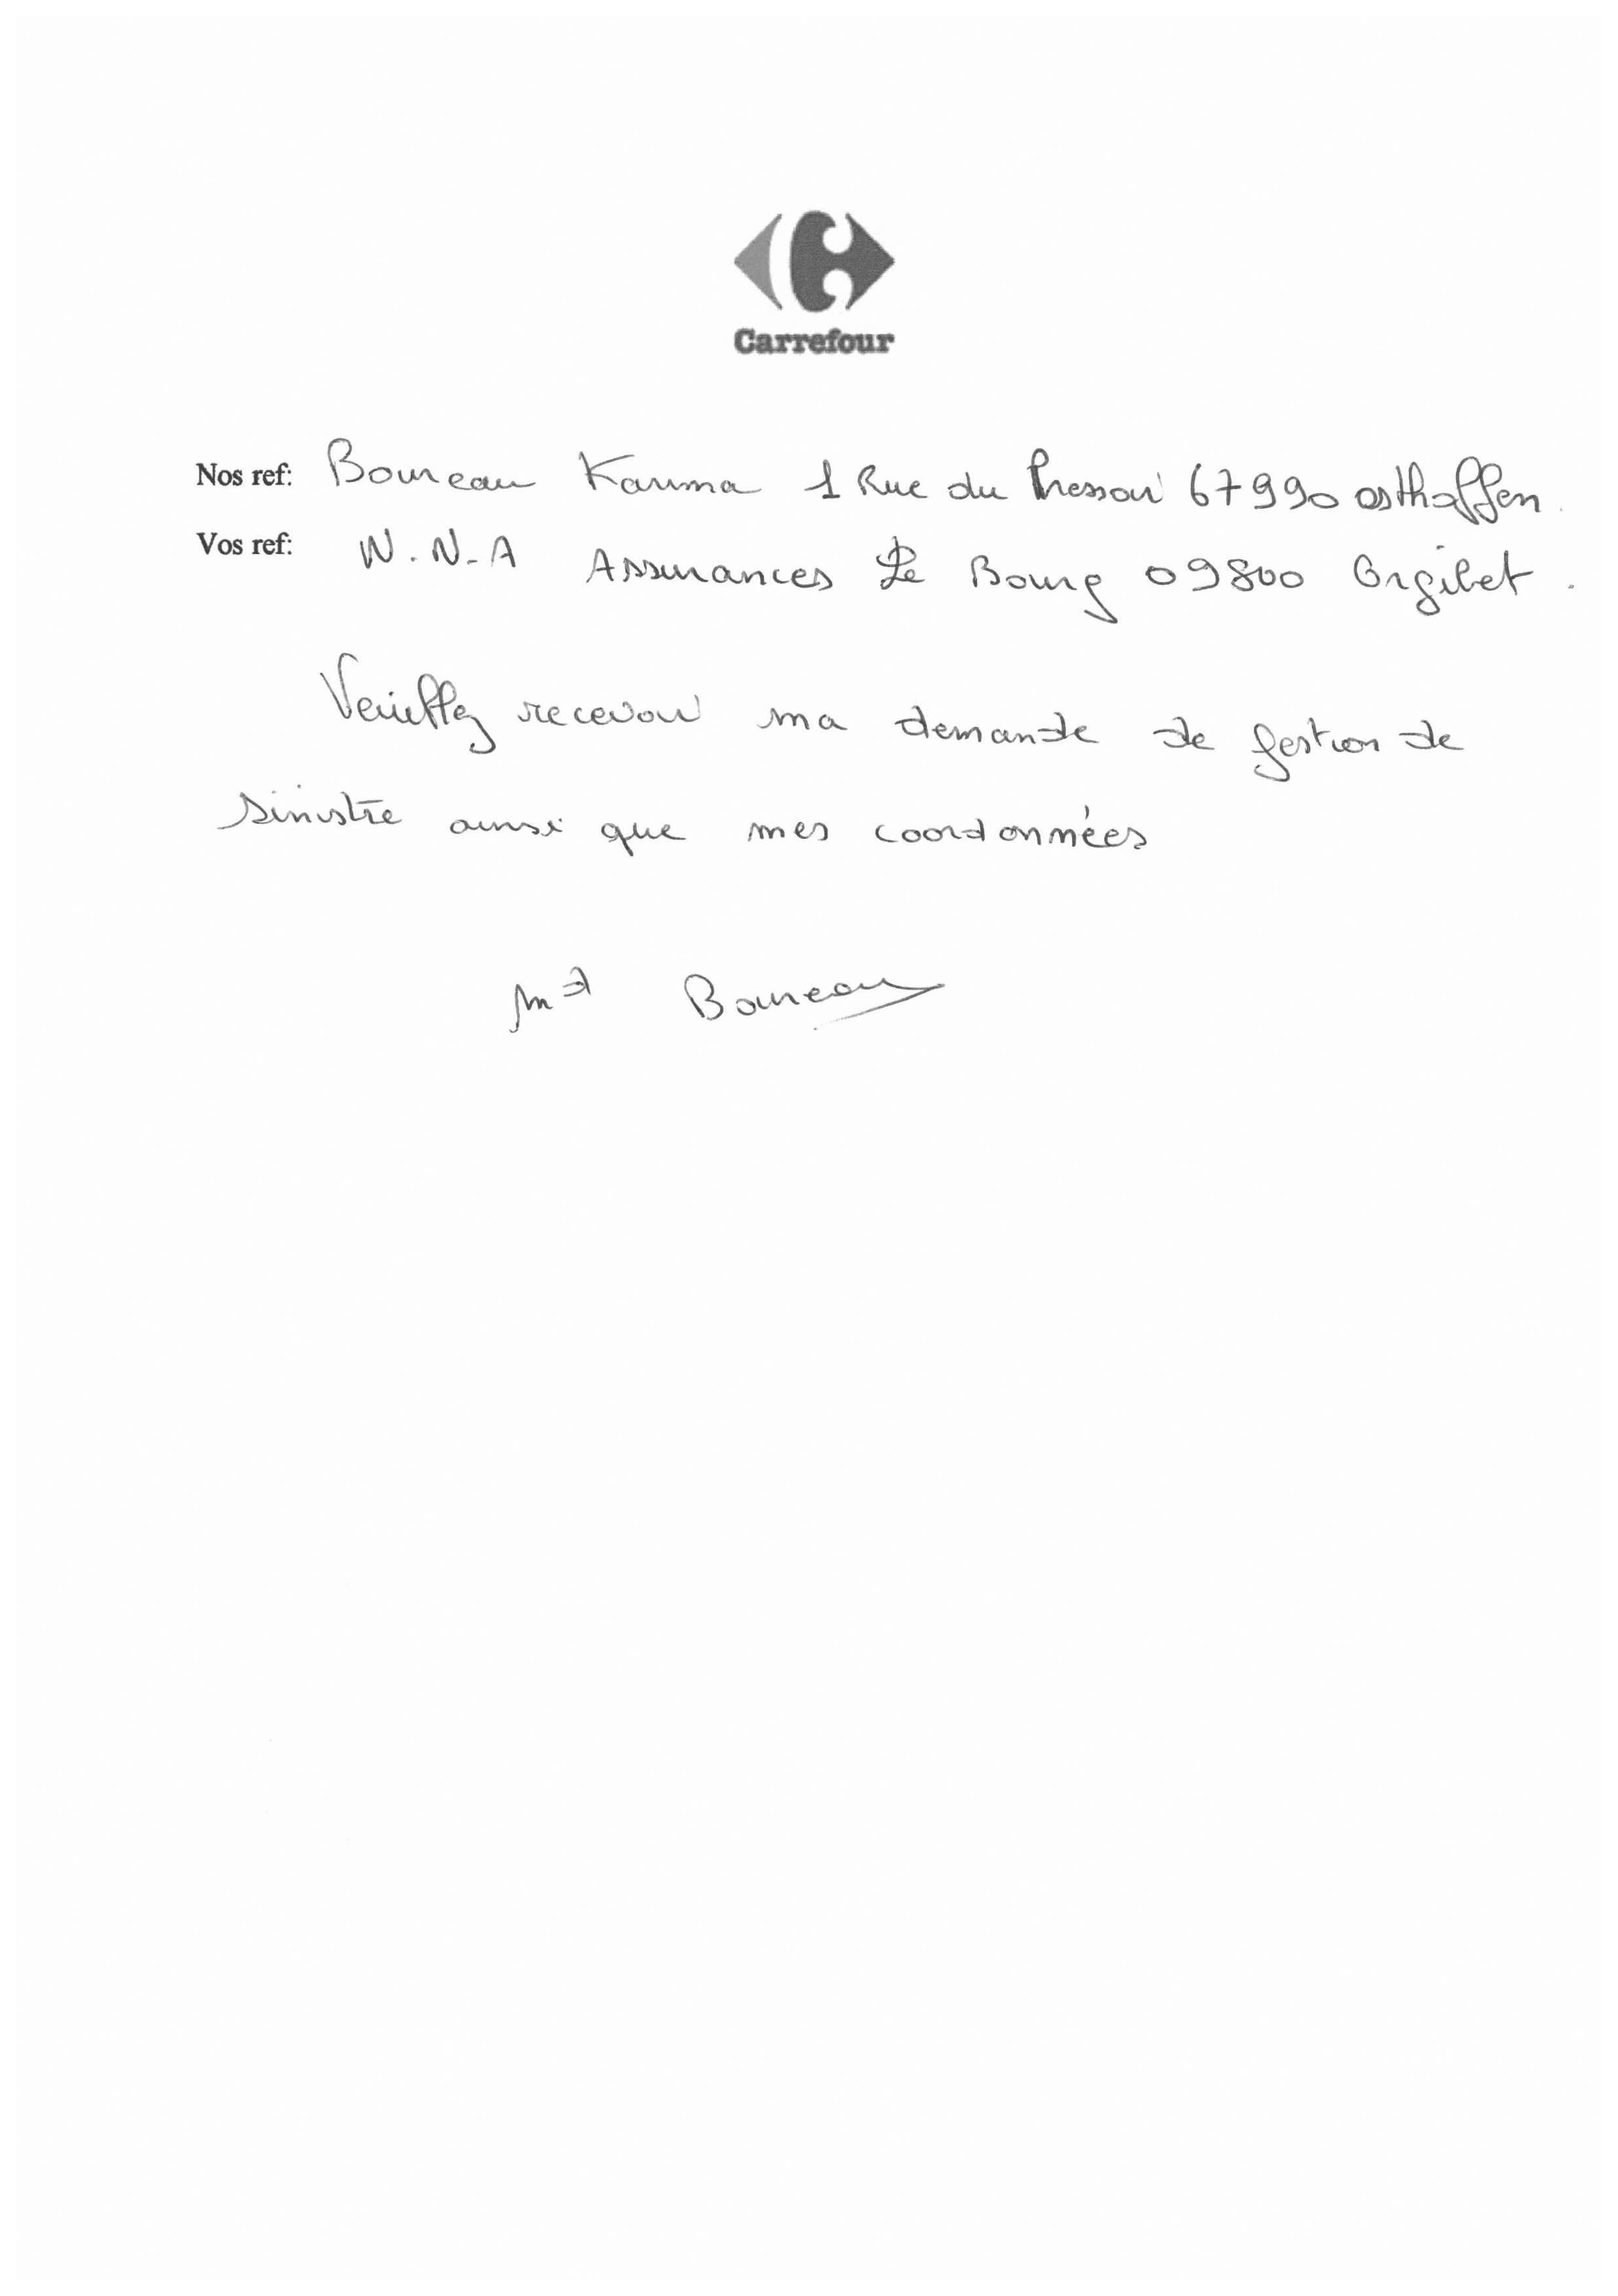 Carrefour
Nos ref: Boureau Karima 1 Rue du Pressoir 67990 osthoffen.
Vos ref: W.N-A Assurances Le Bourg 09800 Orgibet.
Veuillez recevoir ma demande de gestion de
sinistre ainsi que mes coordonnées
Md Boureau